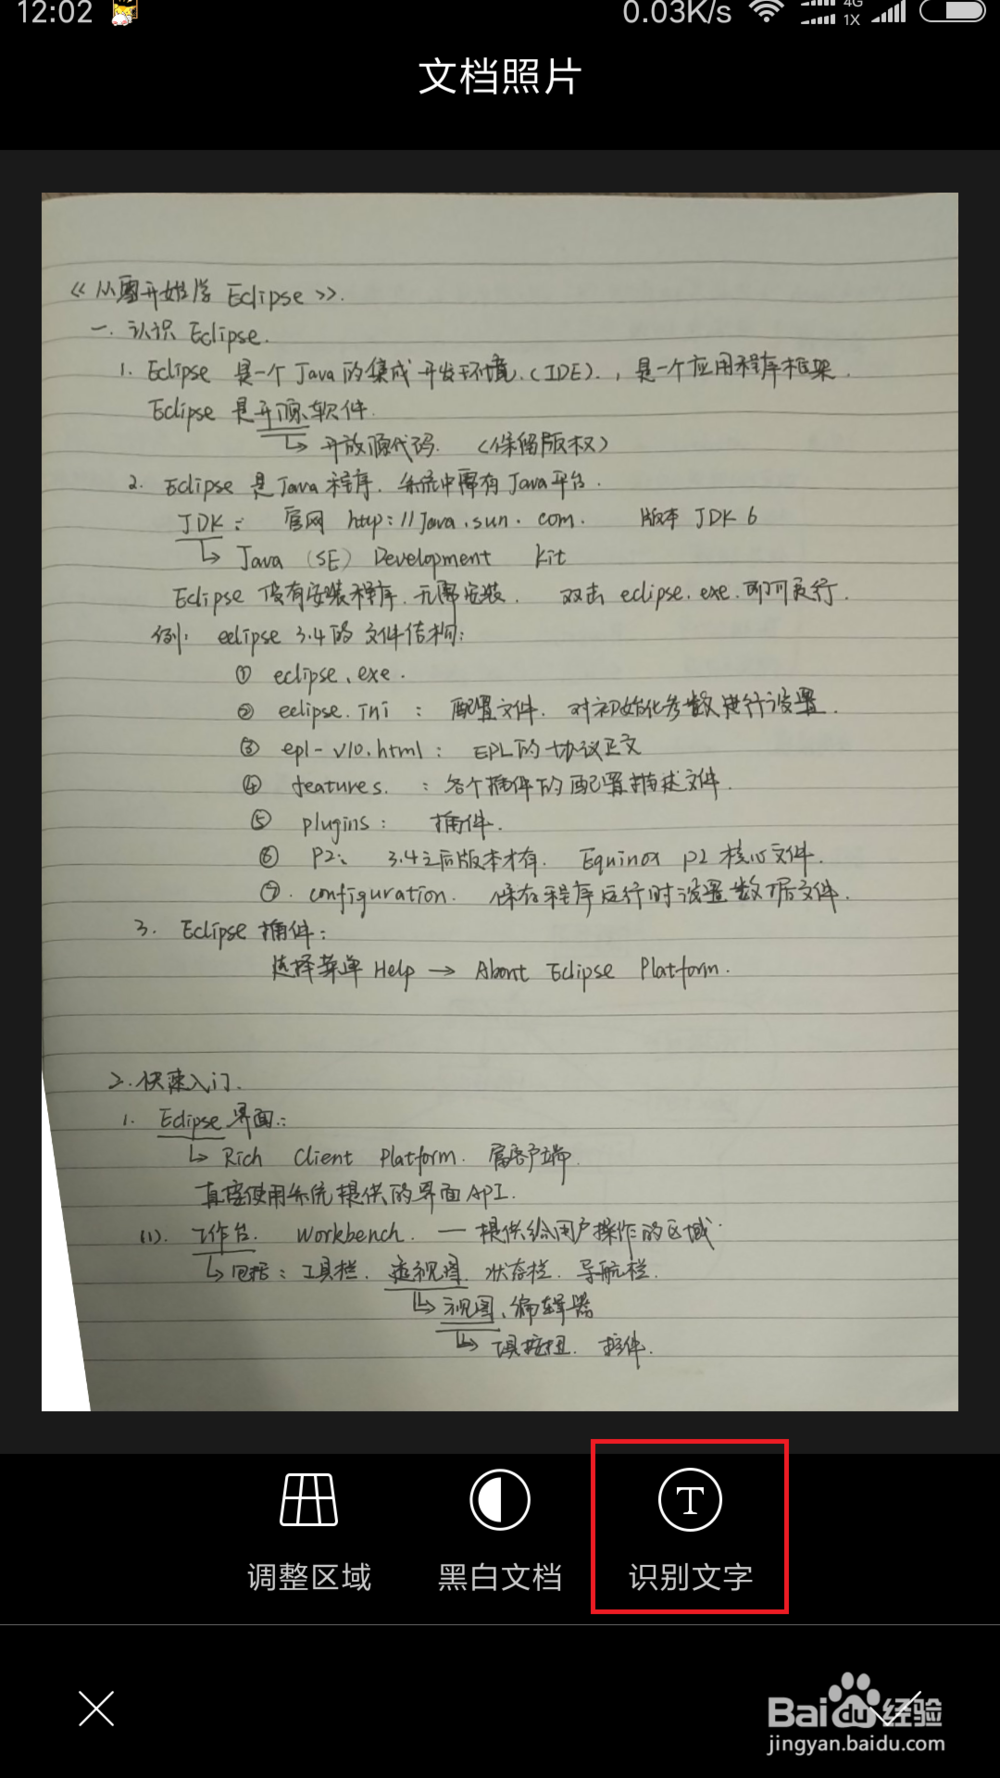 12:02
0.03K/s
4G
1X
文档照片
《从零开始学 Eclipse》.
一. 认识 Eclipse.
1. Eclipse 是一个 Java 的集成开发环境.(IDE). , 是一个应用程序框架.
Eclipse 是开源软件.
↳ 开放源代码. (保留版权)
2. Eclipse 是 Java 程序. 系统中需有 Java 平台.
JDK: 官网 http://Java.sun.com. 版本 JDK 6
↳ Java (SE) Development Kit
Eclipse 没有安装程序. 无需安装. 双击 eclipse.exe.即可运行.
例: eclipse 3.4 的文件结构:
① eclipse.exe.
② eclipse.ini : 配置文件. 对初始化参数进行设置.
③ epl-v10.html: EPL的协议正文
④ features. : 各个插件的配置描述文件.
⑤ plugins: 插件.
⑥ P2: 3.4之后版本才有. Equinox p2 核心文件.
⑦. configuration. 保存程序运行时设置数据文件.
3. Eclipse 插件:
选择菜单 Help → About Eclipse Platform.
2. 快速入门.
1. Eclipse 界面:
↳ Rich Client Platform. 富客户端.
直接使用系统提供的界面 API.
(1). 工作台. Workbench. — 提供给用户操作的区域.
↳ 包括: 工具栏. 透视图. 状态栏. 导航栏.
↳ 视图、编辑器
↳ 工具按钮. 控件.
调整区域
黑白文档
识别文字
Baidu经验
jingyan.baidu.com